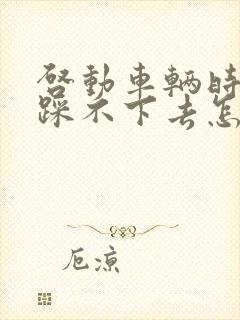 啓動車輛時
踩不下去怎
厄涼